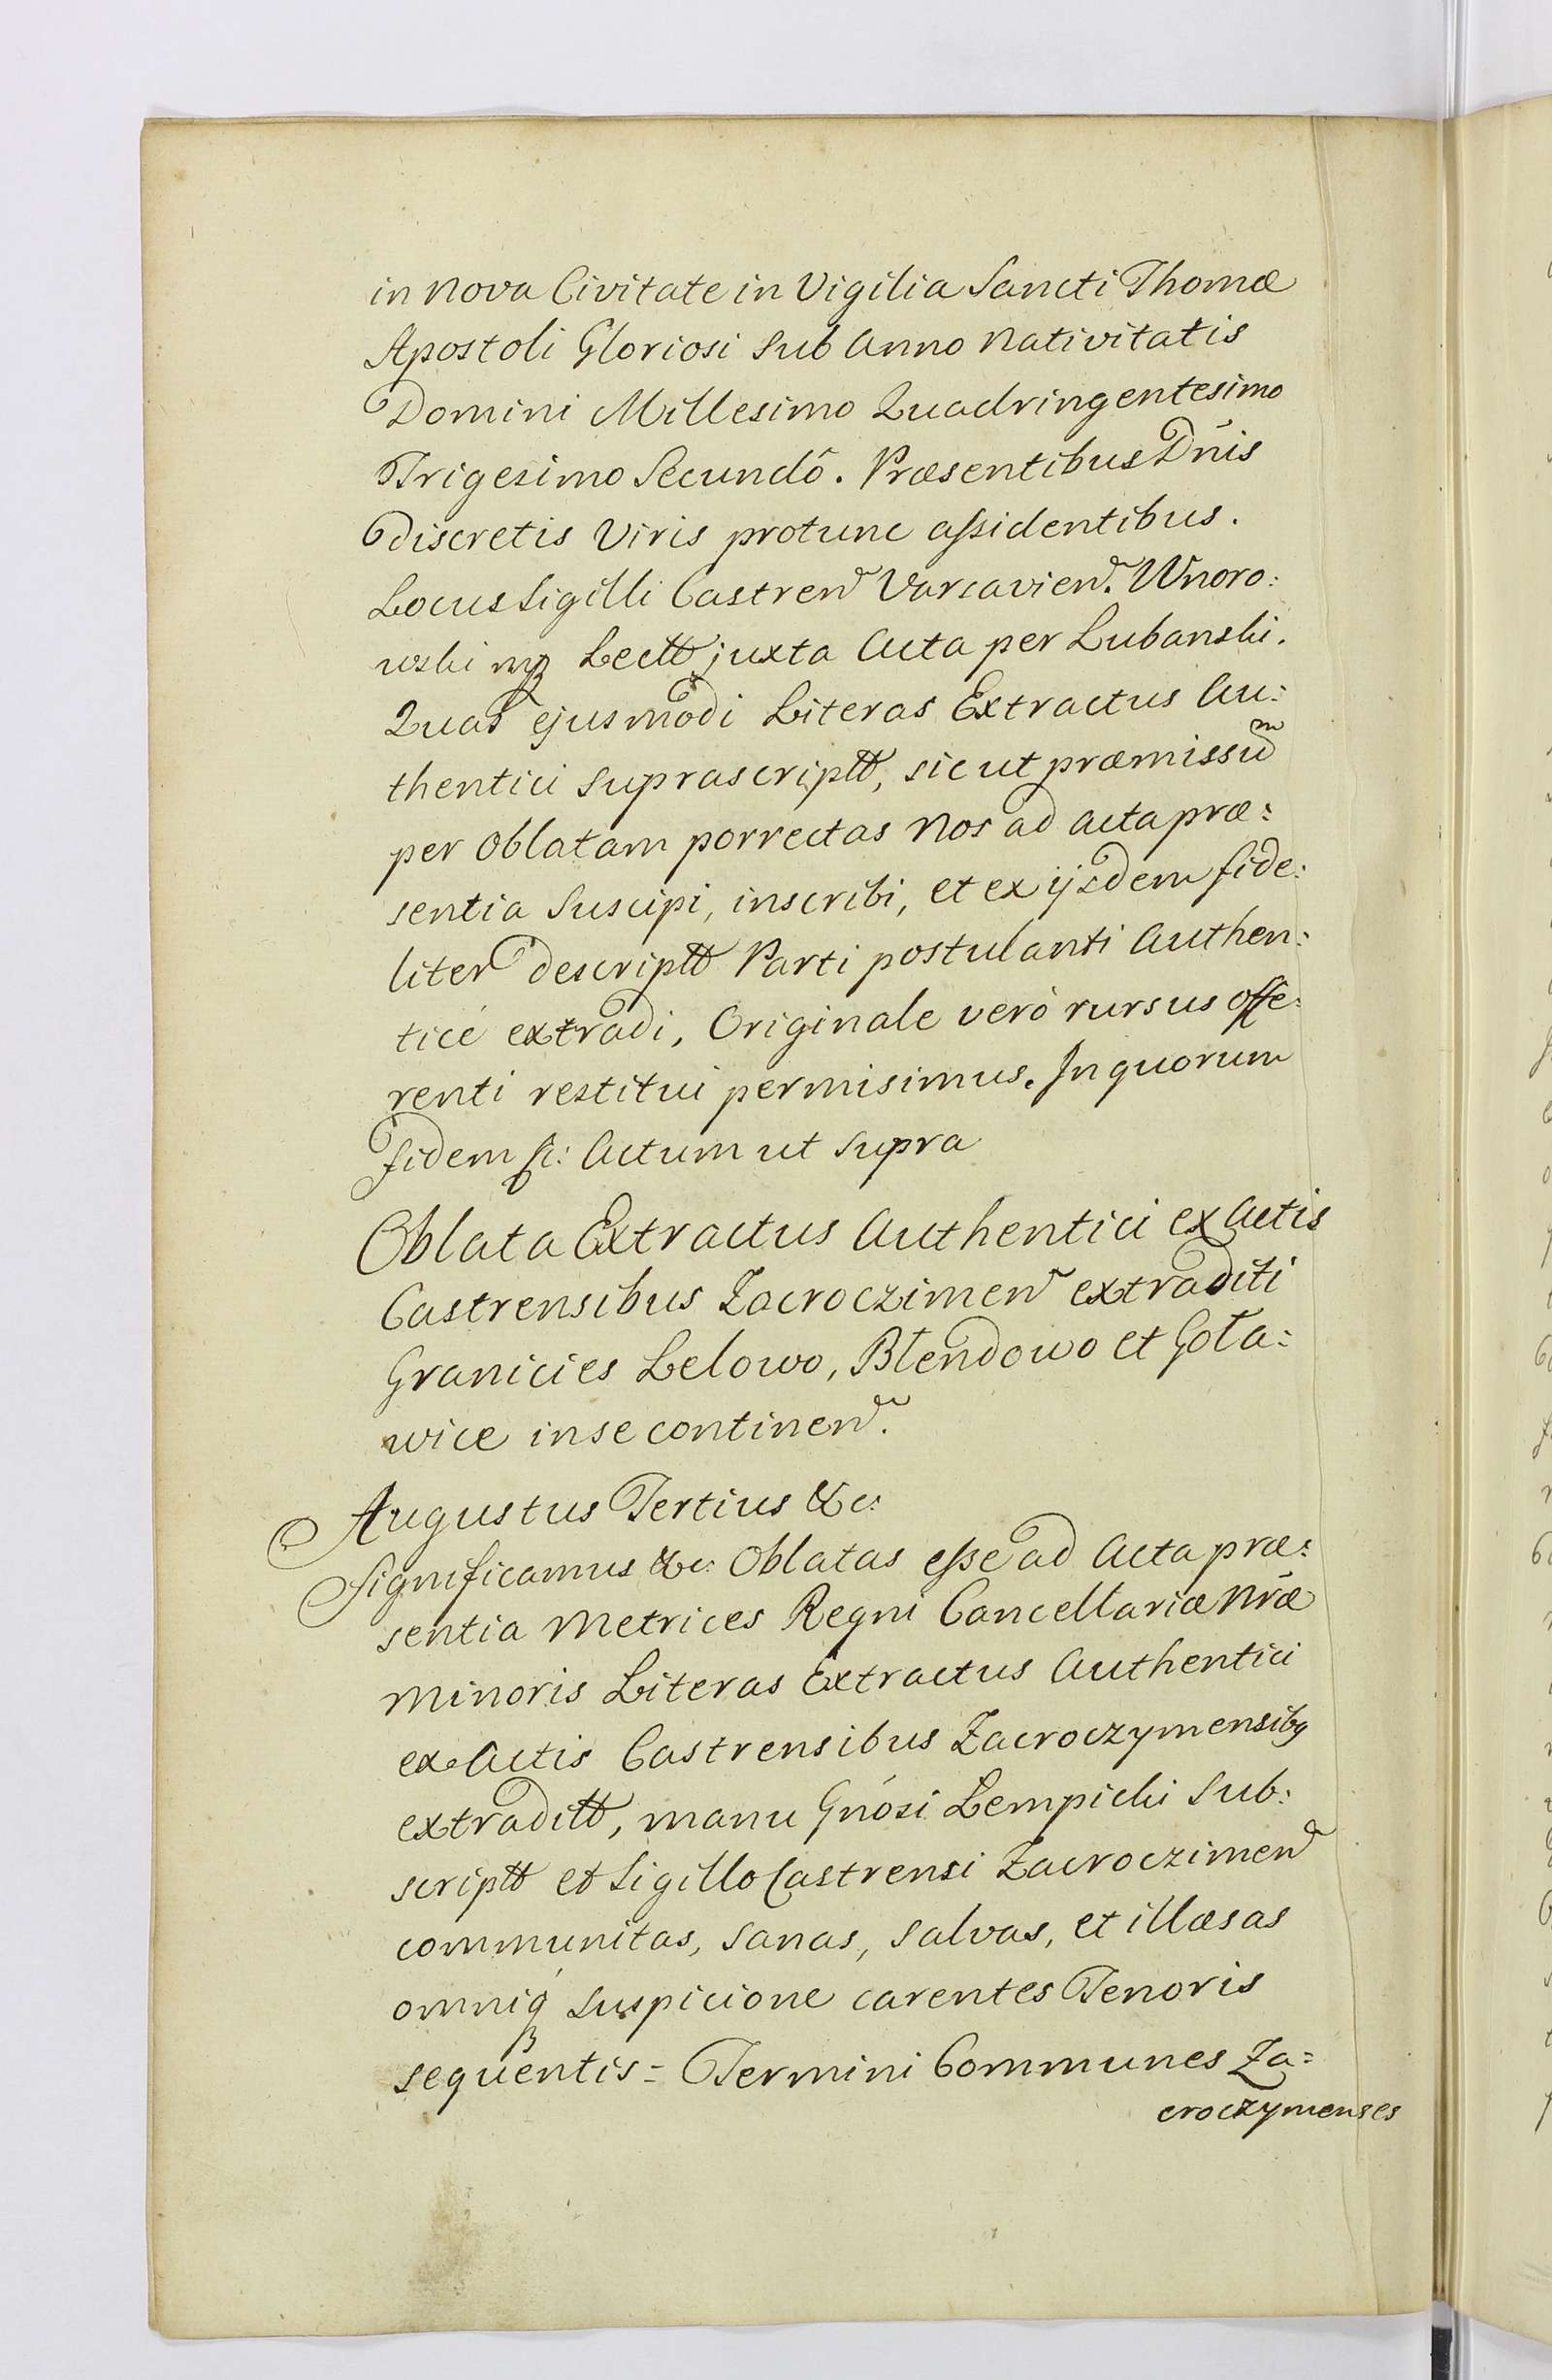 in Nova Civitate in Vigilia Sancti Thomæ
Apostoli Gloriosi Sub Anno Nativitatis
Domini Millesimo Quadringentesimo
Trigesimo Secundô. Præsentibus Dnis
discretis Viris protunc assidentibus.
Locus Sigilli Castren Varsavien. Wnoro:
wski mp Lectt juxta Acta per Lubanski.
Quas ejusmodi Literas Extractus Au:
thentici suprascriptt, sic ut præmissum
per Oblatam porrectas Nos ad acta præ:
sentia Suscipi, inscribi, et ex ijsdem fide:
liter descriptt Parti postulanti Authen:
ticé extradi, Originale verò rursus offe:
renti restitui permisimus. In quorum
fidem &c: Actum ut supra
Oblata Extractus Authentici ex Actis
Castrensibus Zacroczimen extraditi
Granicies Lelowo, Błendowo et Goła:
wice in se continen.
Augustus Tertius &c:
Significamus &c: Oblatas esse ad Acta præ:
sentia Metrices Regni Cancellariæ Nræ
Minoris Literas Extractus Authentici
ex Actis Castrensibus Zacroczymensibq
extraditt, manu Gnosi Lempicki Sub:
scriptt et Sigillo Castrensi Zacroczimen
communitas, sanas, salvas, et illæsas
omniq suspicione carentes Tenoris
sequentis = Termini Communes Za=
croczymenses